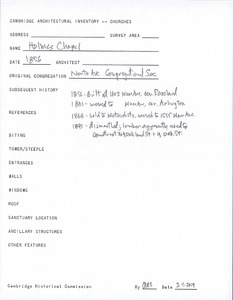 CAMBRIDGE ARCHITECTURAL INVENTORY -- CHURCHES
ADDRESS SURVEY AREA
NAME Holmes Chapel
DATE 1856 ARCHITECT
ORIGINAL CONGREGATION North Ave Congregational Soc
SUBSEQUENT HISTORY 1856 - Built at Mass Ave, cor. Roseland
1861 - moved to Mass Ave, cor. Arlington
REFERENCES 1868 - sold to Methodists, moved to Mass Ave
1891 - dismantled; lumber apparently used to
SITING construct St
TOWER/STEEPLE
ENTRANCES
WALLS
WINDOWS
ROOF
SANCTUARY LOCATION
ANCILLARY STRUCTURES
OTHER FEATURES
Cambridge Historical Commission By Date